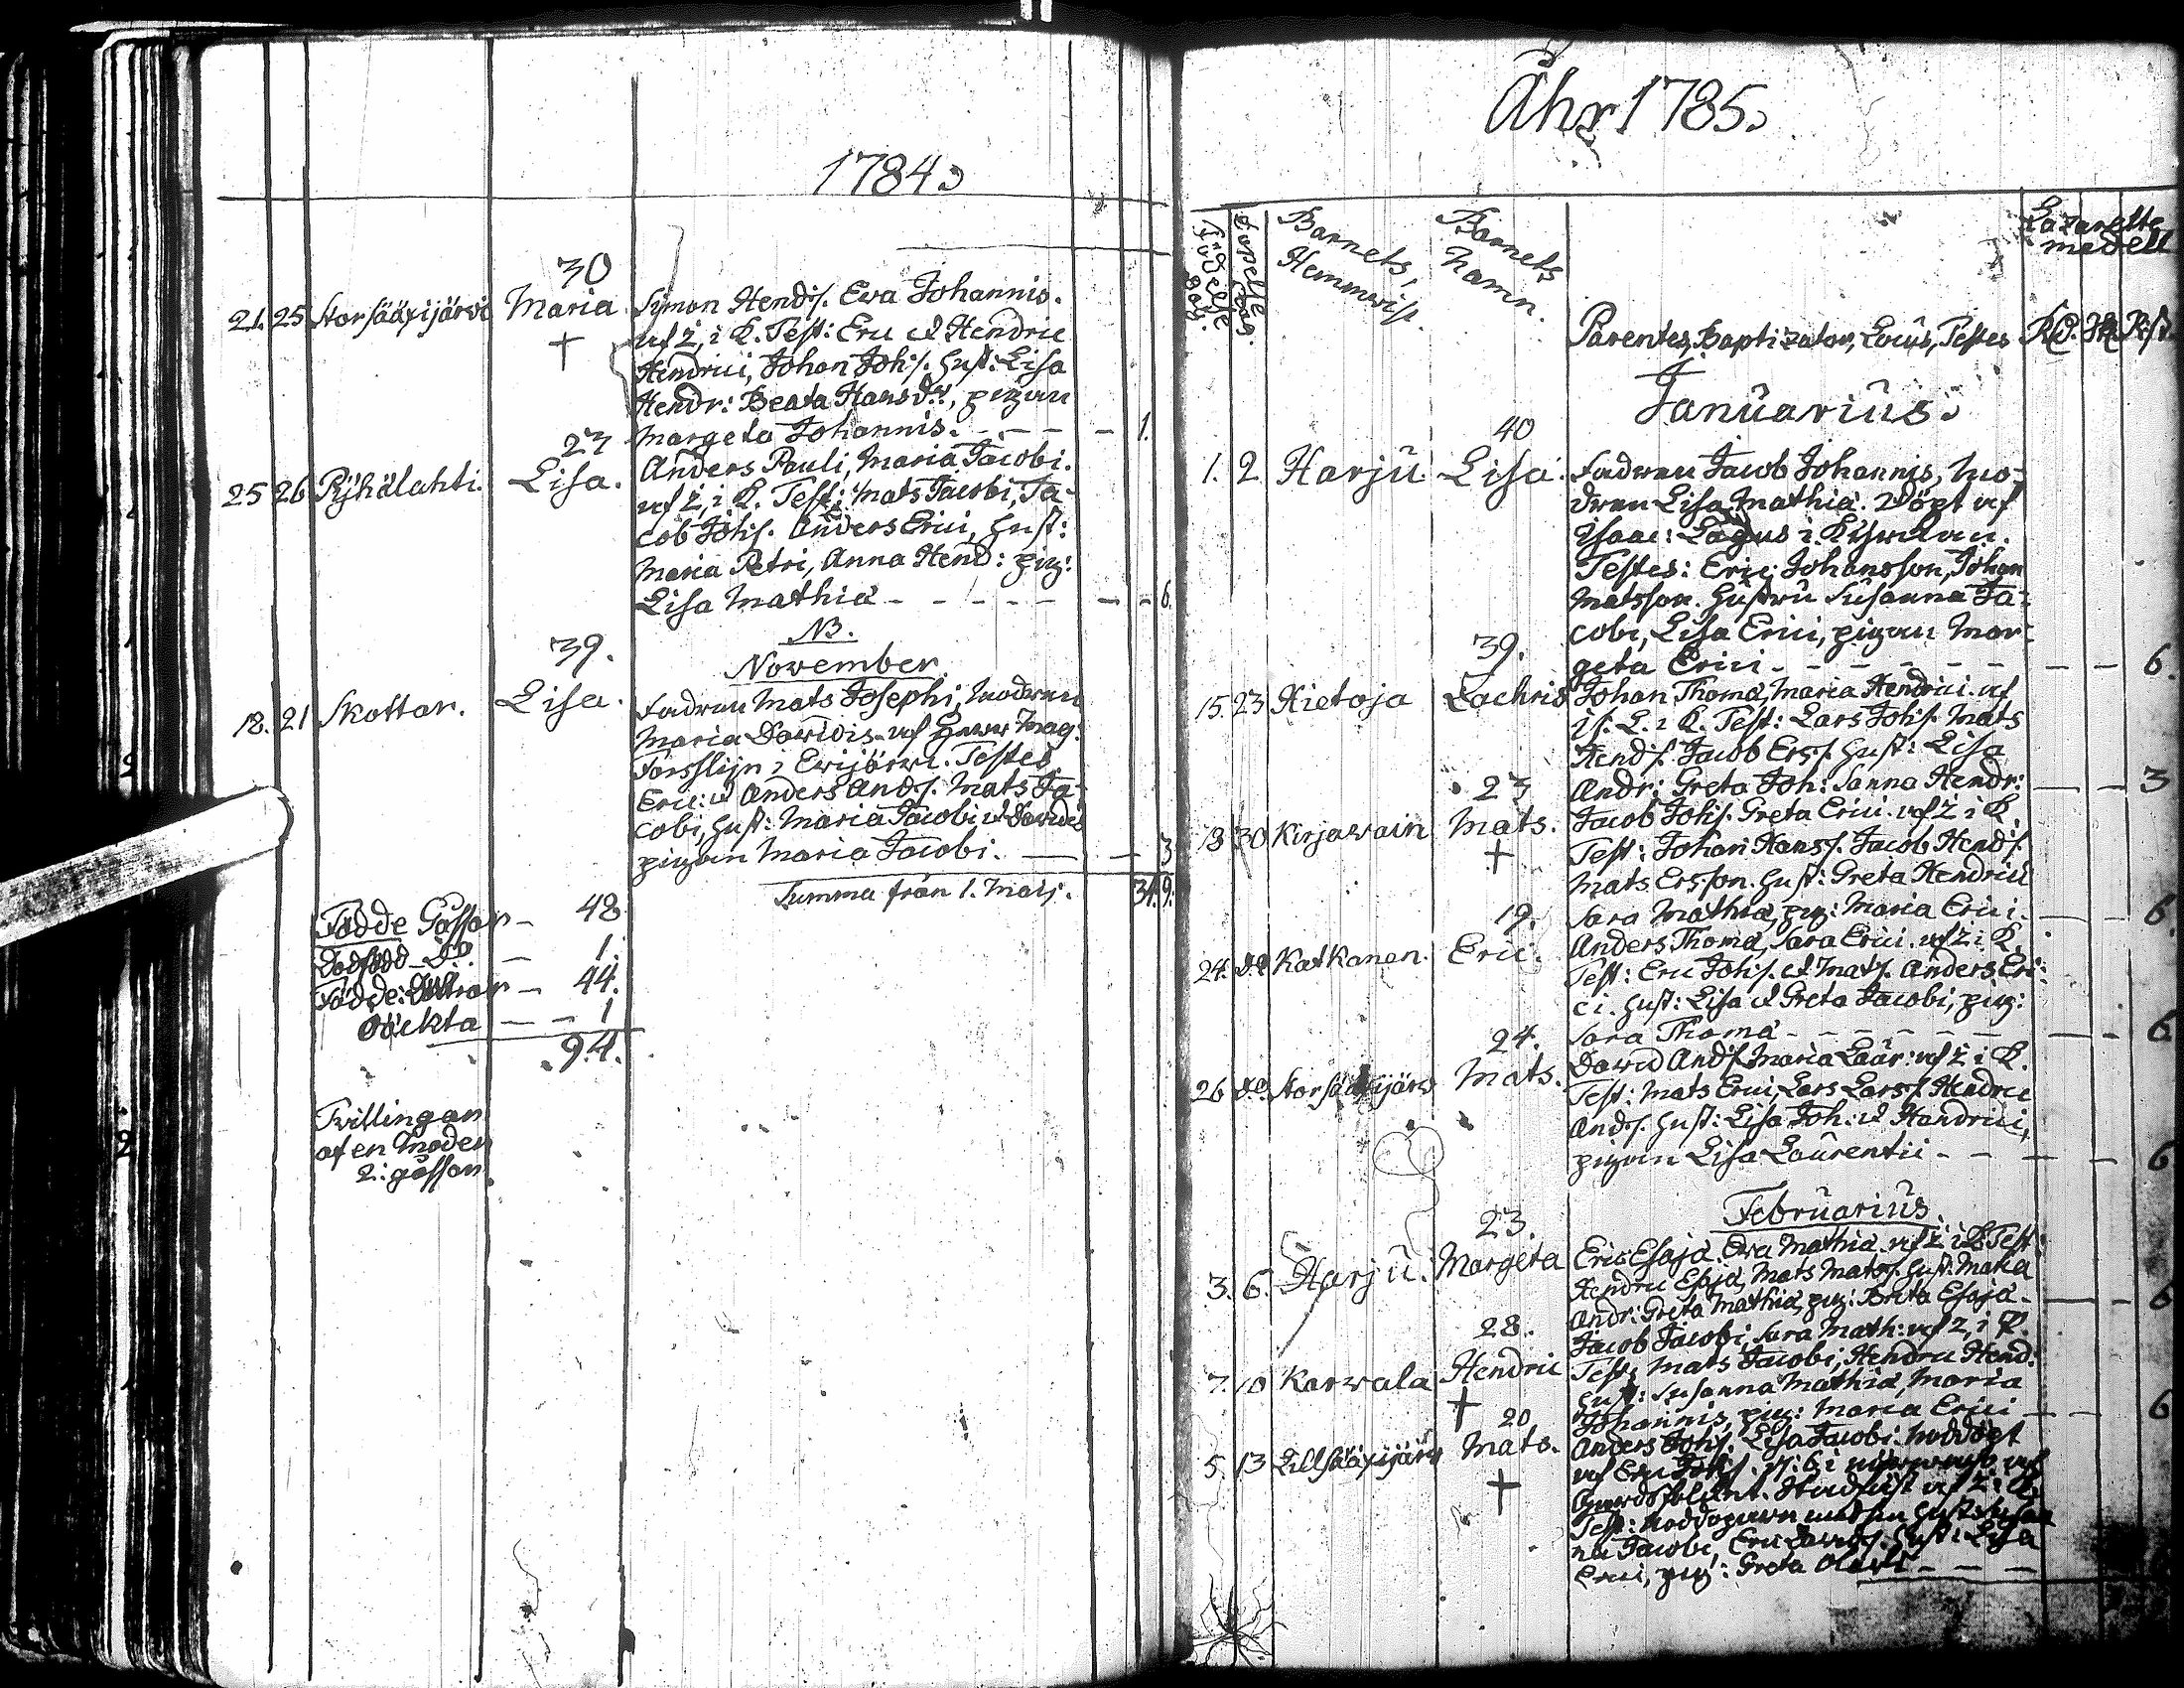 1784.
30
21. 25 Storsääxijärvi Maria Simon Hends. Eva Johannis.
+ af Z, i K. Test: Eric et Hendric
Hendrici, Johan Johs. Hust: Lisa
Hendr: Beata Hansdr, pigan
Margeta Johannis. - - - - 1.
27
25 26 Pyhälahti. Lisa. Anders Pauli, Maria Jacobi.
af Z, i K. Test: Mats Jacobi, Ja-
cob Johs. Anders Erici, Hust:
Maria Petri, Anna Hend: pig:
Lisa Mathiæ - - - - - - - 6.
NB.
39. November
18. 21 Skottar. Lisa. Fadren Mats Josephi, Modren
Maria Davidis af Herr Mag:
Forsslijn i Evijärvi. Testes
Eric: et Anders Ands. Mats Ja-
cobi, Hust: Maria Jacobi et Davidis
pigan Maria Jacobi. — — 3
Summa från 1. Maij. 31. 9.
Födde Gossar — 48
Dödfödd do — 1.
Födde: Döttrar — 44.
Oäckta — — 1
94.
Tvillingar
af en Moder
2: gossar
Åhr 1785.
Födelse dag.
Döpelse dag.
Barnets, Hemmvist.
Barnets Namn.
Lazaretts
medell
Parentes, Baptizator, Locus, Testes Rd. Sk. Rst.
Januarius.
40
1. 2 Harju Lisa. Fadren Jacob Johannis, Mo-
dren Lisa Mathiæ. Döpt af
Isaac: Lagus i Kyrckan.
Testes: Eric Johansson, Johan
Matsson. Hustru Susanna Ja-
cobi, Lisa Erici, pigan Mar-
geta Erici - - - - - - - - 6.
39.
15. 23 Hietoja Zachris Johan Thomæ, Maria Hendrici. af
Is: L. i K. Test: Lars Johs. Mats
Hends. Jacob Erss. Hust: Lisa
Andr: Greta Joh: Sanna Hendr: — — 3
23
18 30 Kirjavain Mats. Jacob Johs. Greta Erici. af Z i K.
+ Test: Johan Hanss. Jacob Hends.
Mats Ersson. Hust: Greta Hendrici
Sara Mathiæ, pig: Maria Erici. — — 6.
19.
24. do Katkanen. Eric. Anders Thomæ, Sara Erici. af Z i K.
Test: Eric Johs. et Mats. Anders Eri-
ci. Hust: Lisa et Greta Jacobi, pig:
Sara Thomæ - - - - - - - - 6.
24.
26 do. Storsääxijärv Mats. David Ands. Maria Laur: af Z i K.
Test: Mats Erici, Lars Larss. Hendric
Ands. Hust: Lisa Joh: et Hendrici,
pigan Lisa Laurentii - - - - - 6
Februarius.
23.
3. 6. Harju. Margeta Eric Esajæ. Eva Mathiæ af Z i K Test:
Hendric Esajæ, Mats Mats. Hust: Maria
Andr: Greta Mathiæ, pig: Brita Esajæ - — — 6
28.
7. 10 Karvala Hendric Jacob Jacobi, Sara Math: af Z, i K.
+ Test: Mats Jacobi, Hendric Hend:
Hust: Susanna Mathiæ, Maria
Johannis, pig: Maria Erici — — 6
20
5. 13 Lillsääxijärv Mats. Anders Johs. Lisa Jacobi. Nöddöpt
+ af Eric Johs.
Stadfäst af Z i K.
Test: Nöddöparen med sin Hust: Susan
na Jacobi, Eric Davids. Hust: Lisa
Erici, pig: Greta Olavi - - -